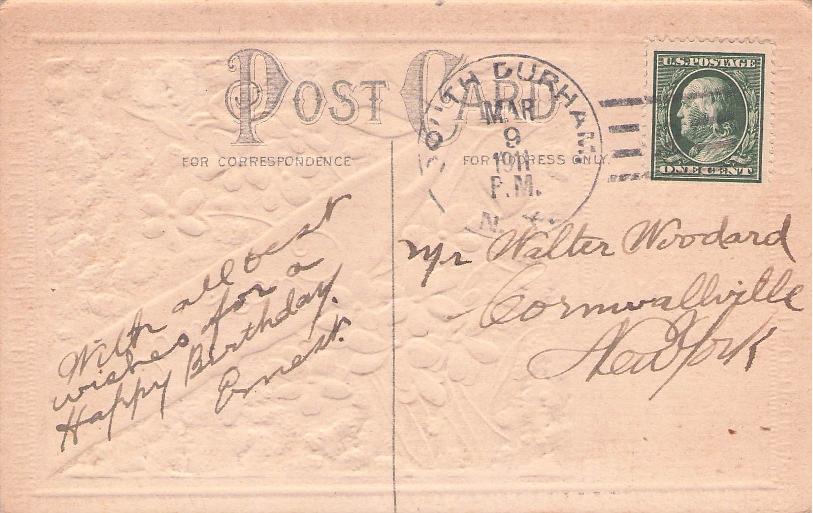 POST CARD
FOR CORRESPONDENCE
FOR ADDRESS ONLY.
SOUTH DURHAM
MAR
9
1911
P.M.
N.
U.S. POSTAGE
ONE CENT
With all best
wishes for a
Happy Birthday.
Ernest.
Mr Walter Woodard
Cornwallville
New York